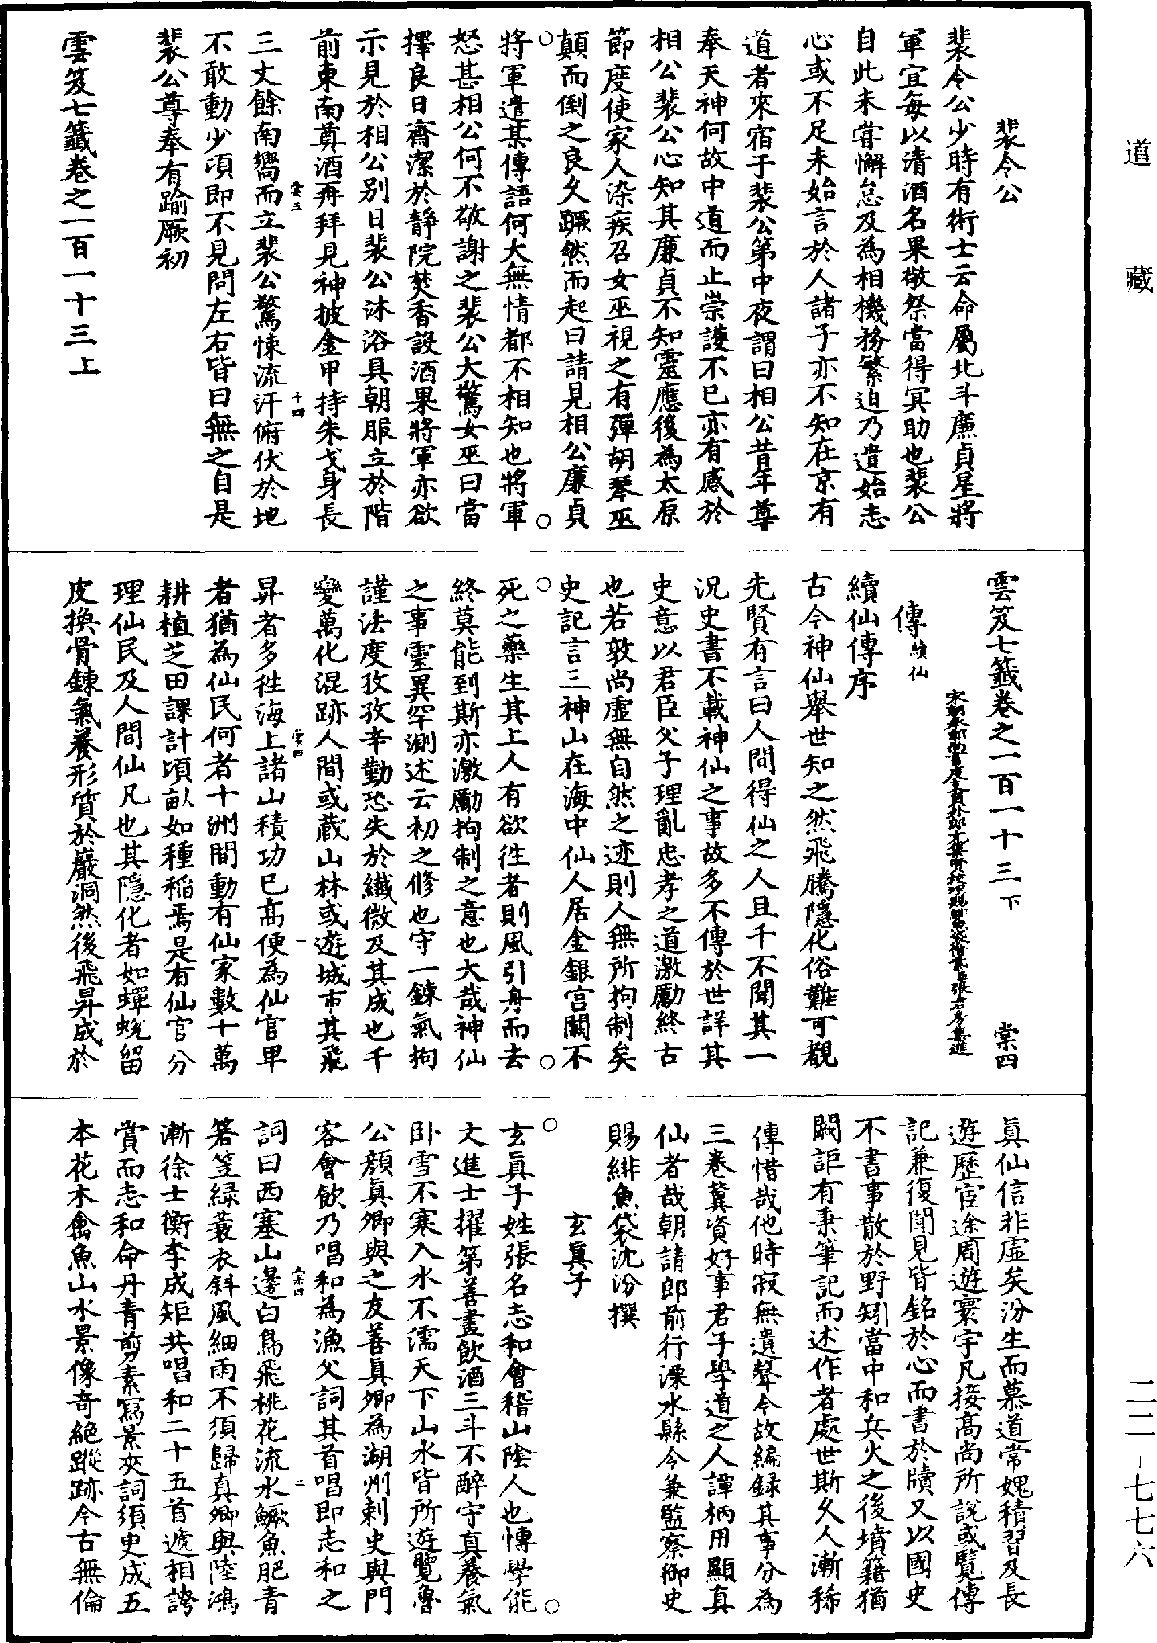 裴令公
裴令公少時有術士云命屬北斗廉貞星將
軍宜每以清酒名果敬祭當得冥助也裴公
自此未嘗懈怠及為相機務繁迫乃遺始志
心或不足未始言於人諸子亦不知在京有
道者來宿于裴公第中夜謂曰相公昔年尊
奉天神何故中道而止崇護不已亦有感於
相公裴公心知其廉貞不知靈應後為太原
節度使家人染疾召女巫視之有彈胡琴巫
顛而倒之良久蹶然而起曰請見相公廉貞
將軍遣某傳語何大無情都不相知也將軍
怒甚相公何不敬謝之裴公大驚女巫曰當
擇良日齋潔於靜院焚香設酒果將軍亦欲
示見於相公別日裴公沐浴具朝服立於階
前東南尊酒再拜見神披金甲持朱戈身長
三丈餘南嚮而立裴公驚悚流汗俯伏於地
不敢動少頃即不見問左右皆曰無之自是
裴公尊奉有踰厥初
雲笈七籤卷之一百一十三上
雲笈七籤卷之一百一十三下 棠四
傳續仙
續仙傳序
古今神仙舉世知之然飛騰隱化俗難可覩
先賢有言曰人間得仙之人且千不聞其一
況史書不載神仙之事故多不傳於世詳其
史意以君臣父子理亂忠孝之道激勵終古
也若敦尚虛無自然之迹則人無所拘制矣
史記言三神山在海中仙人居金銀宮闕不
死之藥生其上人有欲往者則風引舟而去
終莫能到斯亦激勵拘制之意也大哉神仙
之事靈異罕測述云初之修也守一鍊氣拘
謹法度孜孜辛勤恐失於纖微及其成也千
變萬化混跡人間或藏山林或遊城市其飛
昇者多往海上諸山積功已高便為仙官卑
者猶為仙民何者十洲間動有仙家數十萬
耕植芝田課計頃畝如種稻焉是有仙官分
理仙民及人間仙凡也其隱化者如蟬蛻留
皮換骨鍊氣養形質於巖洞然後飛昇成於
真仙信非虛矣汾生而慕道常媿積習及長
遊歷宦途周遊寰宇凡接高尚所說或覽傳
記兼復聞見皆銘於心而書於牘又以國史
不書事散於野矧當中和兵火之後墳籍猶
闕詎有秉筆記而述作者處世斯久人漸稀
傳惜哉他時寂無遺聲今故編錄其事分為
三卷冀資好事君子學道之人譚柄用顯真
仙者哉朝請郎前行溧水縣令兼監察御史
賜緋魚袋沈汾撰
玄真子
玄真子姓張名志和會稽山陰人也博學能
文進士擢第善畫飲酒三斗不醉守真養氣
卧雪不寒入水不濡天下山水皆所遊覽魯
公顏真卿與之友善真卿為湖州刺史與門
客會飲乃唱和為漁父詞其首唱即志和之
詞曰西塞山邊白鳥飛桃花流水鱖魚肥青
箬笠綠蓑衣斜風細雨不須歸真卿與陸鴻
漸徐士衡李成矩共唱和二十五首遞相誇
賞而志和命丹青剪素寫景夾詞須臾成五
本花木禽魚山水景像奇絕蹤跡今古無倫
道藏
二二-七七六